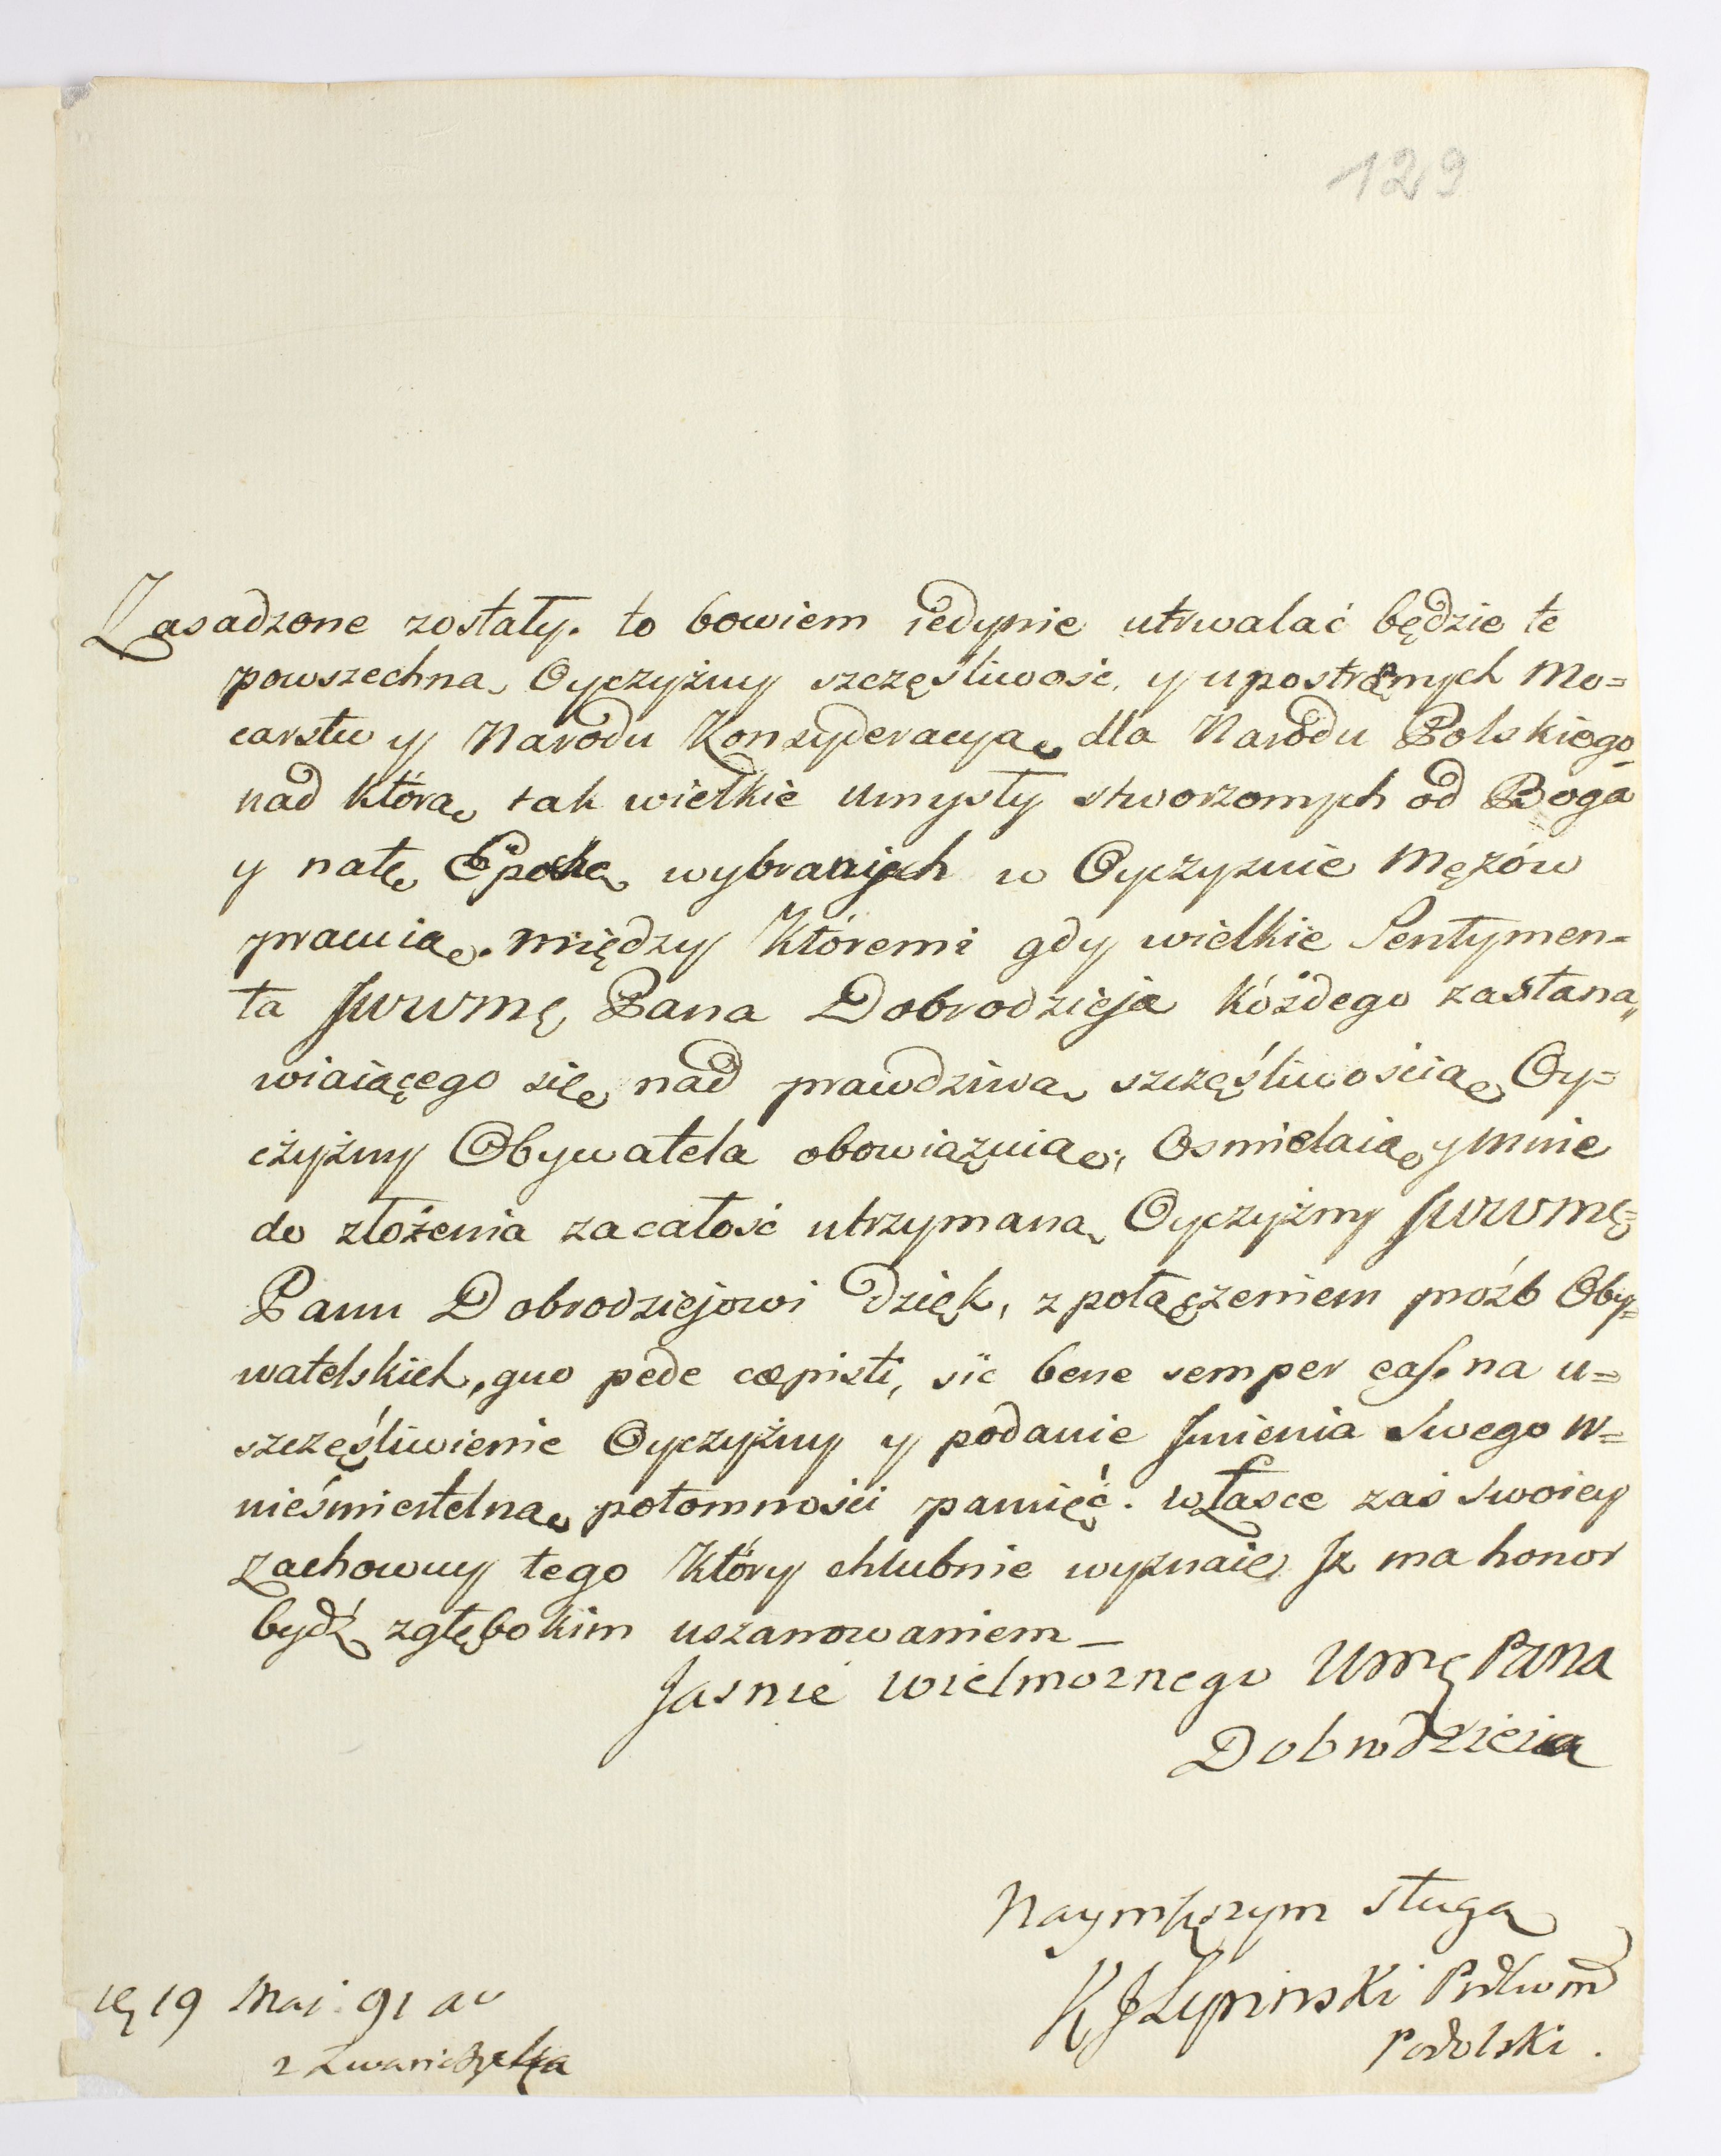 129
Zasadzone zostały. to bowiem iedynie utrwalać będzie te
powszechną Oyczyżny szczęśliwość, y upostronnych Mo=
carstw y Narodu Konsyderacyą dla Narodu Polskiego
nad którą tak wielkie umysły stworzonych od Boga
y natę Epokę wybranych w Oyczyznie Mężów
pracuią. między Któremi gdy wielkie Sentymen=
ta JWWMę Pana Dobrodzieja kóżdego zastana„
wiaiącego się nad prawdziwą szczęśliwością Oy=
czyżny Obywatela obowiązuią; Osmielaią y mnie
do złożenia zacałość utrzymaną Oyczyżny JWWMę=
Panu Dobrodziejowi dzięk, z połączeniem proźb Oby=
watelskich, quo pede cœpisti, sic bene semper eas. na u=
szczęśliwienie Oyczyżny y podanie Jmienia Swego w=
nieśmiertelną potomności pamięć. własce zaś swoiey
zachowuy tego Który chlubnie wyznaie Jż ma honor
bydź zgłębokim uszanowaniem_
Jasnie wielmoznego WMę Pana
Dobrodzieia
Naymszym sługą
K J Lypinski
Podolski.
19 Maj 91 ao